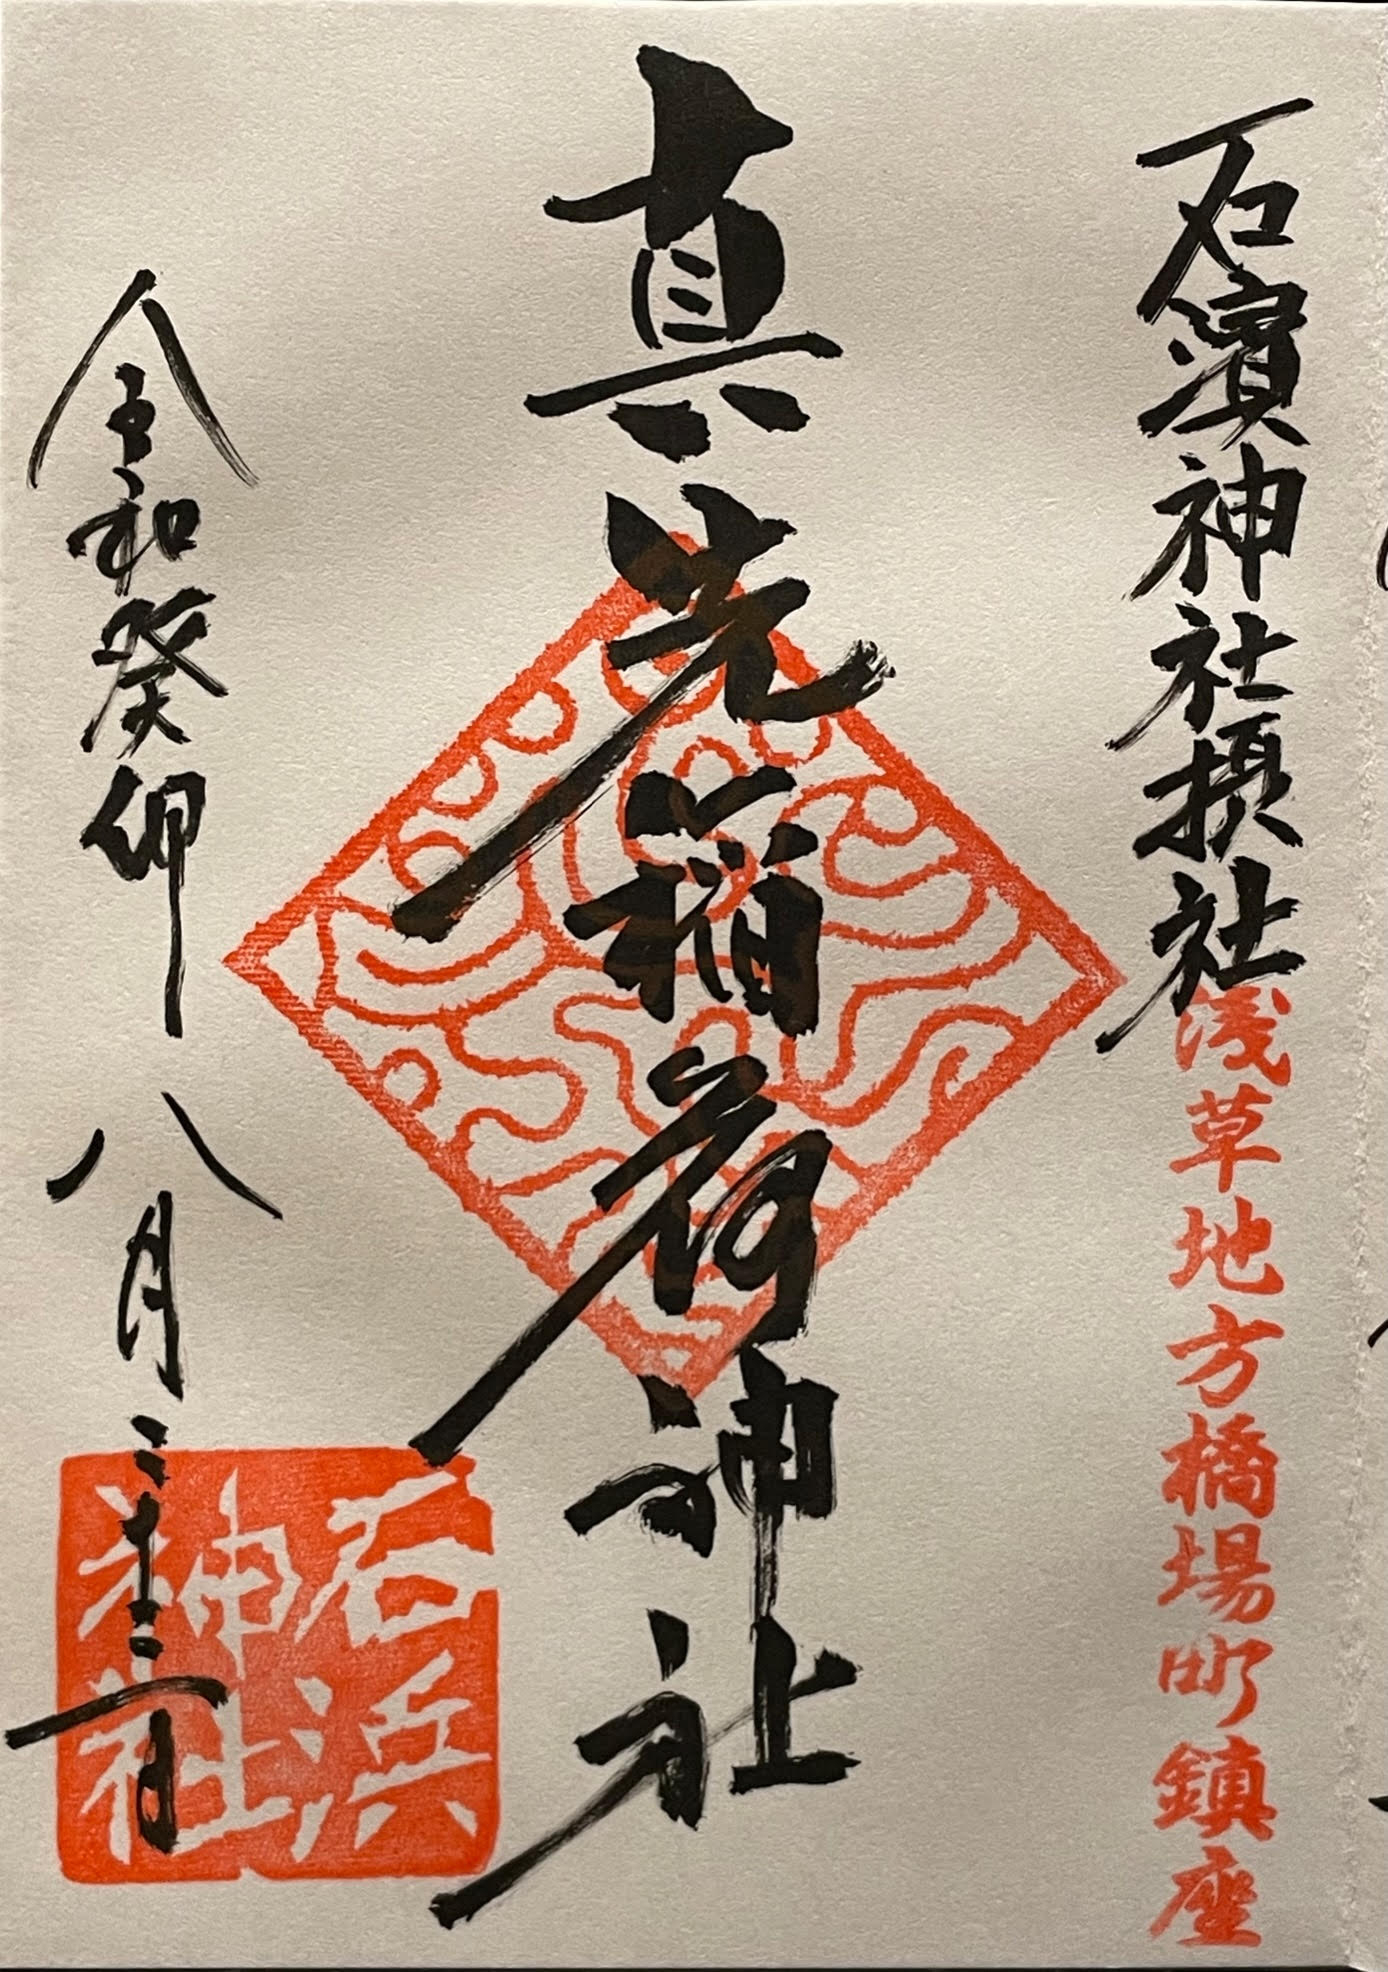 石濱神社摂社
浅草地方橋場町鎮座
真先稲荷神社
令和癸卯 八月二十三日
石浜
神社